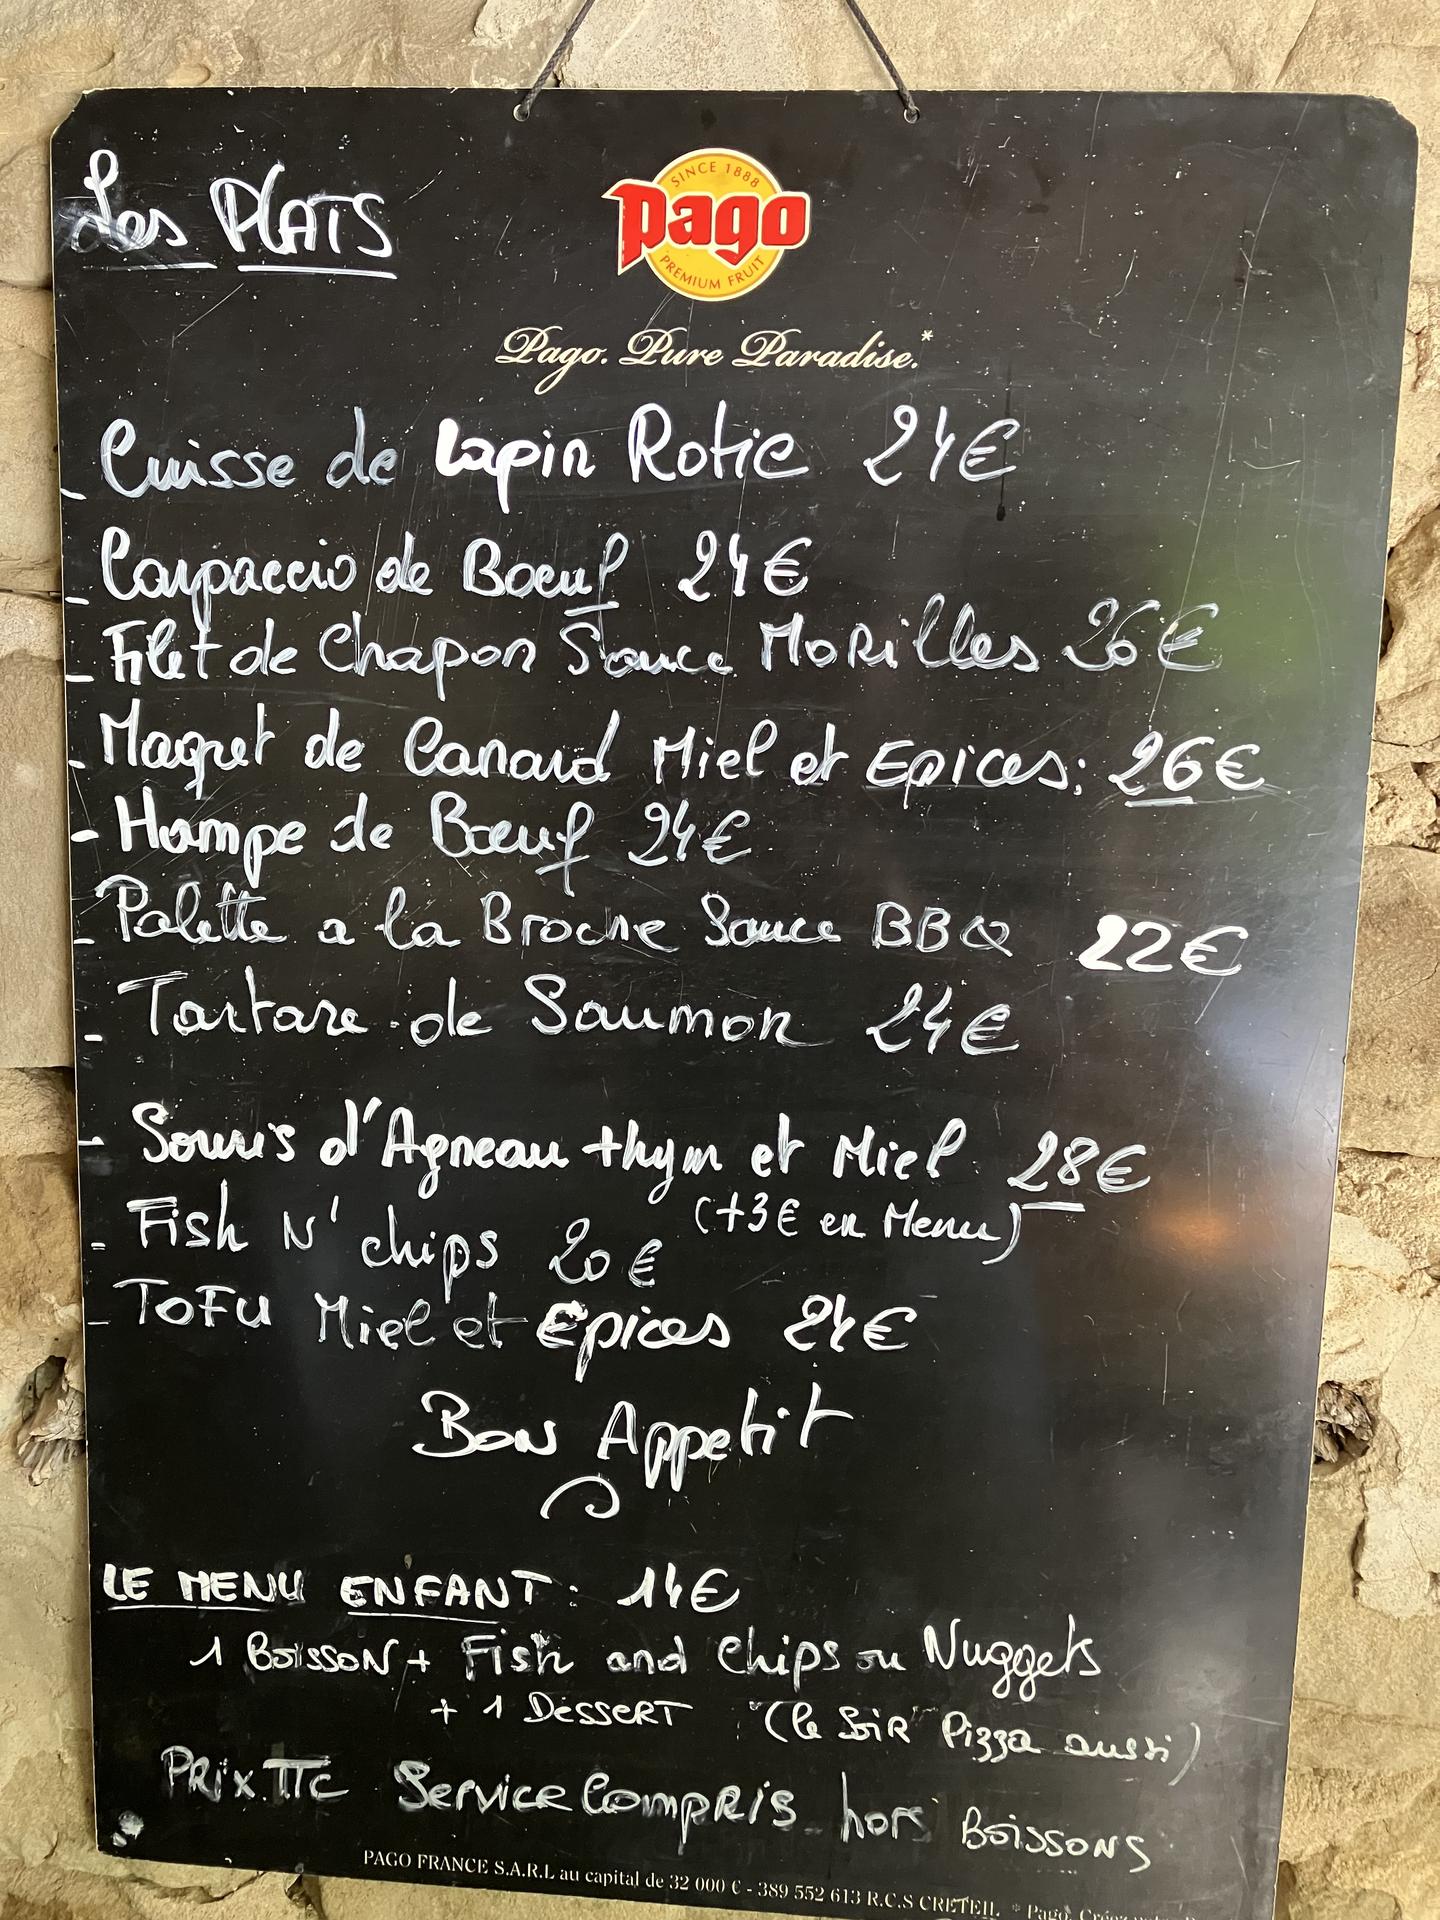 Les PLATS
SINCE 1888
Pago
PREMIUM FRUIT
Pago. Pure Paradise.*
- Cuisse de Lapin Rotie 24€
- Carpaccio de Boeuf 24€
- Filet de Chapon Sauce MoRilles 26€
- Magret de Canard Miel et Epices: 26€
- Hampe de Bœuf 24€
- Palette a la Broche Sauce BBQ 22€
- Tartare de Saumon 24€
- Souris d'Agneau thym et Miel 28€
(+3€ en Menu)
- Fish N' chips 20€
- ToFu Miel et Epices 24€
Bon Appetit
LE MENU ENFANT: 14€
1 BOISSON + Fish and Chips ou Nuggets
+ 1 DESSERT (le SoiR Pizza aussi)
PRix TTc Service CompRis hors BOISSONS
PAGO FRANCE S.A.R.L au capital de 32 000 € - 389 552 613 R.C.S CRETEIL * Pago.